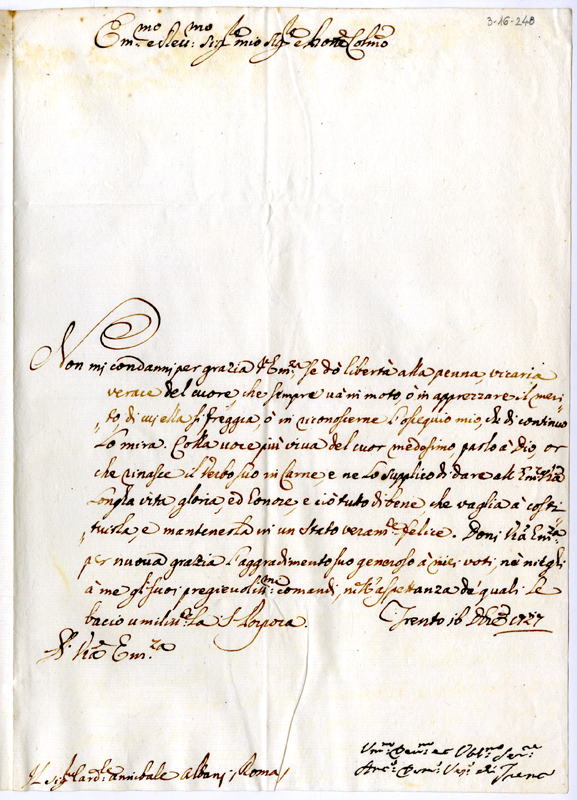 3-16-248
Em.mo e Rev.mo Sig.r mio Sig.r e Prone Colmo
Non mi condanni per grazia V. Em.za se dò libertà alla penna, vicaria
verace del cuore, che sempre và in moto, ò in apprezzare il meri-
to, di cui ella si freggia, ò in riconoscerne l'ossequio mio, che di continuo
Lo mira. Colla voce più viva del cuor medesimo parlo à Dio, or
che rinasce il Verbo suo in Carne e ne Lo supplico di dare all' Em.za V.ra
longha vita gloria, ed honore, e ciò tuto di bene che vaglia à costi-
tuirla, e mantenerla in un stato veram.te felice. Doni V.ra Em.za
per nuova grazia l'aggradimento suo generoso à miei voti nè nieghi
à me gl. suoi pregievolissmi comandi, nell' aspettanza de quali Le
bacio umilm.te La S. Porpora. Trento 16 Xbre 1727
Di V.ra Em.za
Um.mo Dev.mo et Obl.mo Ser.re
Ant.o Dom.o Ves.o di Trento
Il Sig. Card.le Annibale Albani, Roma